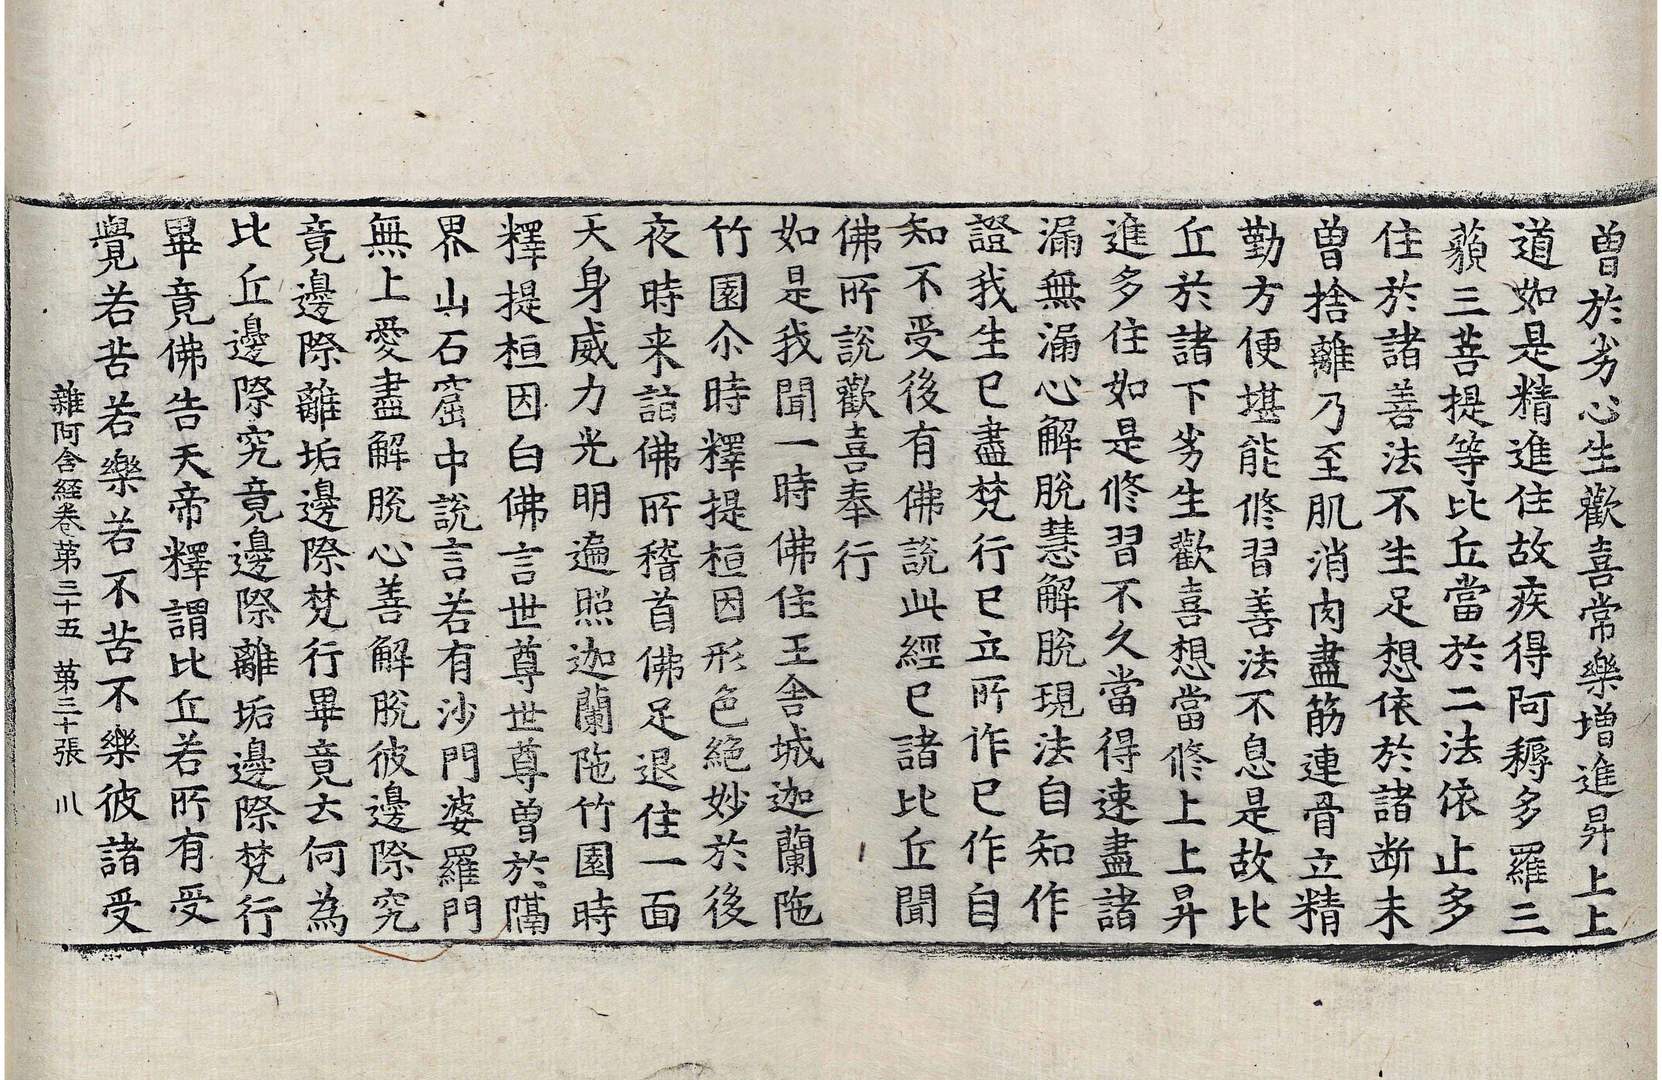 曽於劣心生歡喜常樂增進昇上上
道如是精進住故疾得阿耨多羅三
藐三菩提等比丘當於二法依止多
住於諸善法不生足想依於諸断未
曽捨離乃至肌消肉盡筋連骨立精
勤方便堪能修習善法不息是故比
丘於諸下劣生歡喜想當修上上昇
進多住如是修習不久當得速盡諸
漏無漏心解脫慧解脫現法自知作
證我生已盡梵行已立所作已作自
知不受後有佛說此經已諸比丘聞
佛所說歡喜奉行
如是我聞一時佛住王舎城迦蘭陁
竹園尒時釋提桓因形色絕妙於後
夜時来詣佛所稽首佛足退住一面
天身威力光明遍照迦蘭陁竹園時
釋提桓因白佛言世尊世尊曽於隔
界山石窟中說言若有沙門婆羅門
無上愛盡解脫心善解脫彼邊際究
竟邊際離垢邊際梵行畢竟云何為
比丘邊際究竟邊際離垢邊際梵行
畢竟佛告天帝釋謂比丘若所有受
覺若苦若樂若不苦不樂彼諸受
雜阿含経卷第三十五 第三十張 川